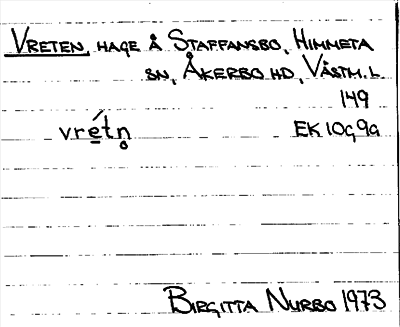 VRETEN, HAGE Å STAFFANSBO, HIMMETA
SN, ÅKERBO HD, VÄSTM. L.
149
vré̲tn̥ EK 10G9a
BIRGITTA NURBO 1973